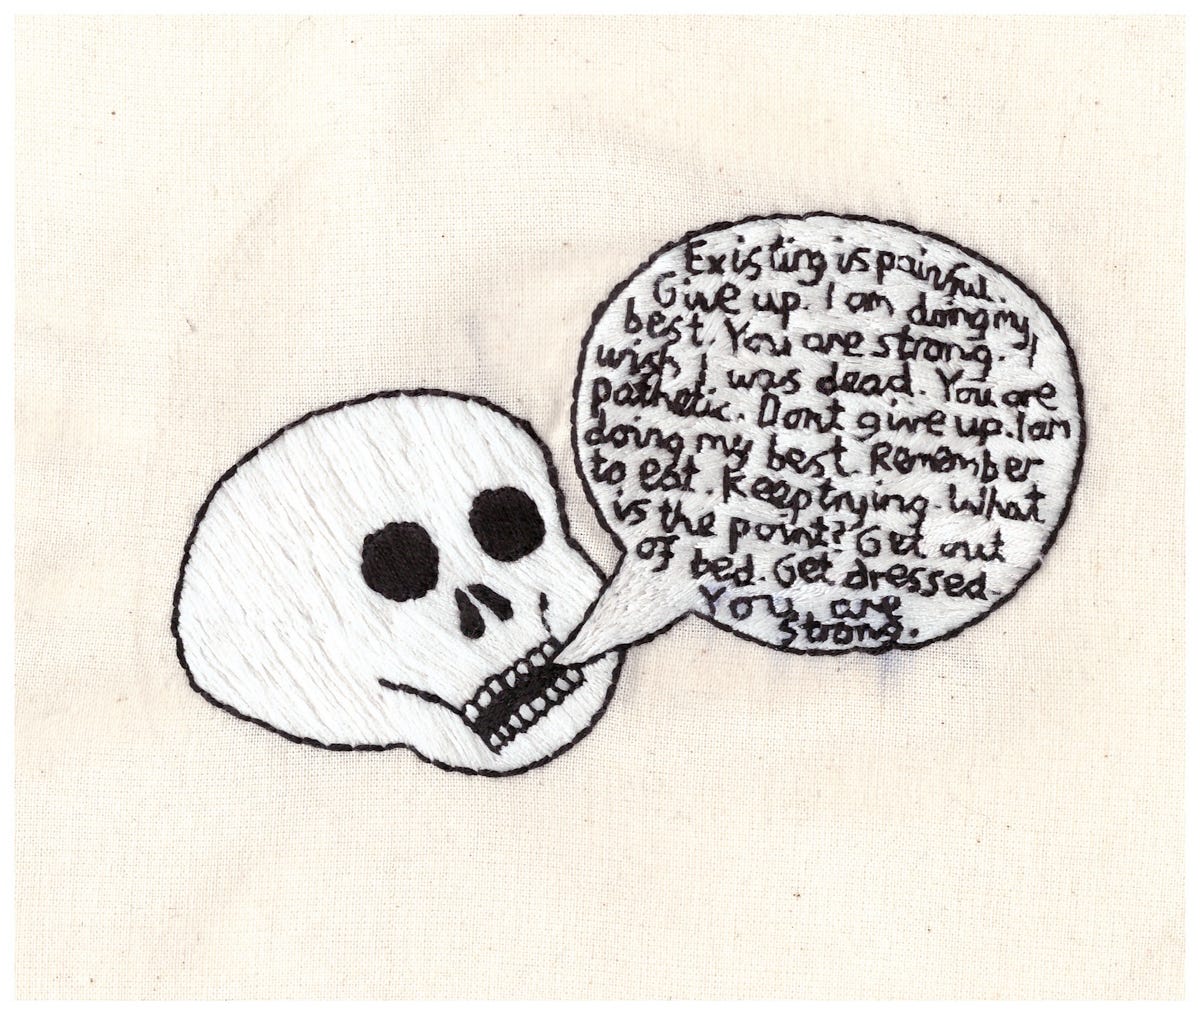 Existing is painful.
Give up. I am doing my
best. You are strong. I
wish I was dead. You are
pathetic. Dont give up. I am
doing my best. Remember
to eat. Keep trying. What
is the point? Get out
of bed. Get dressed.
You are
strong.